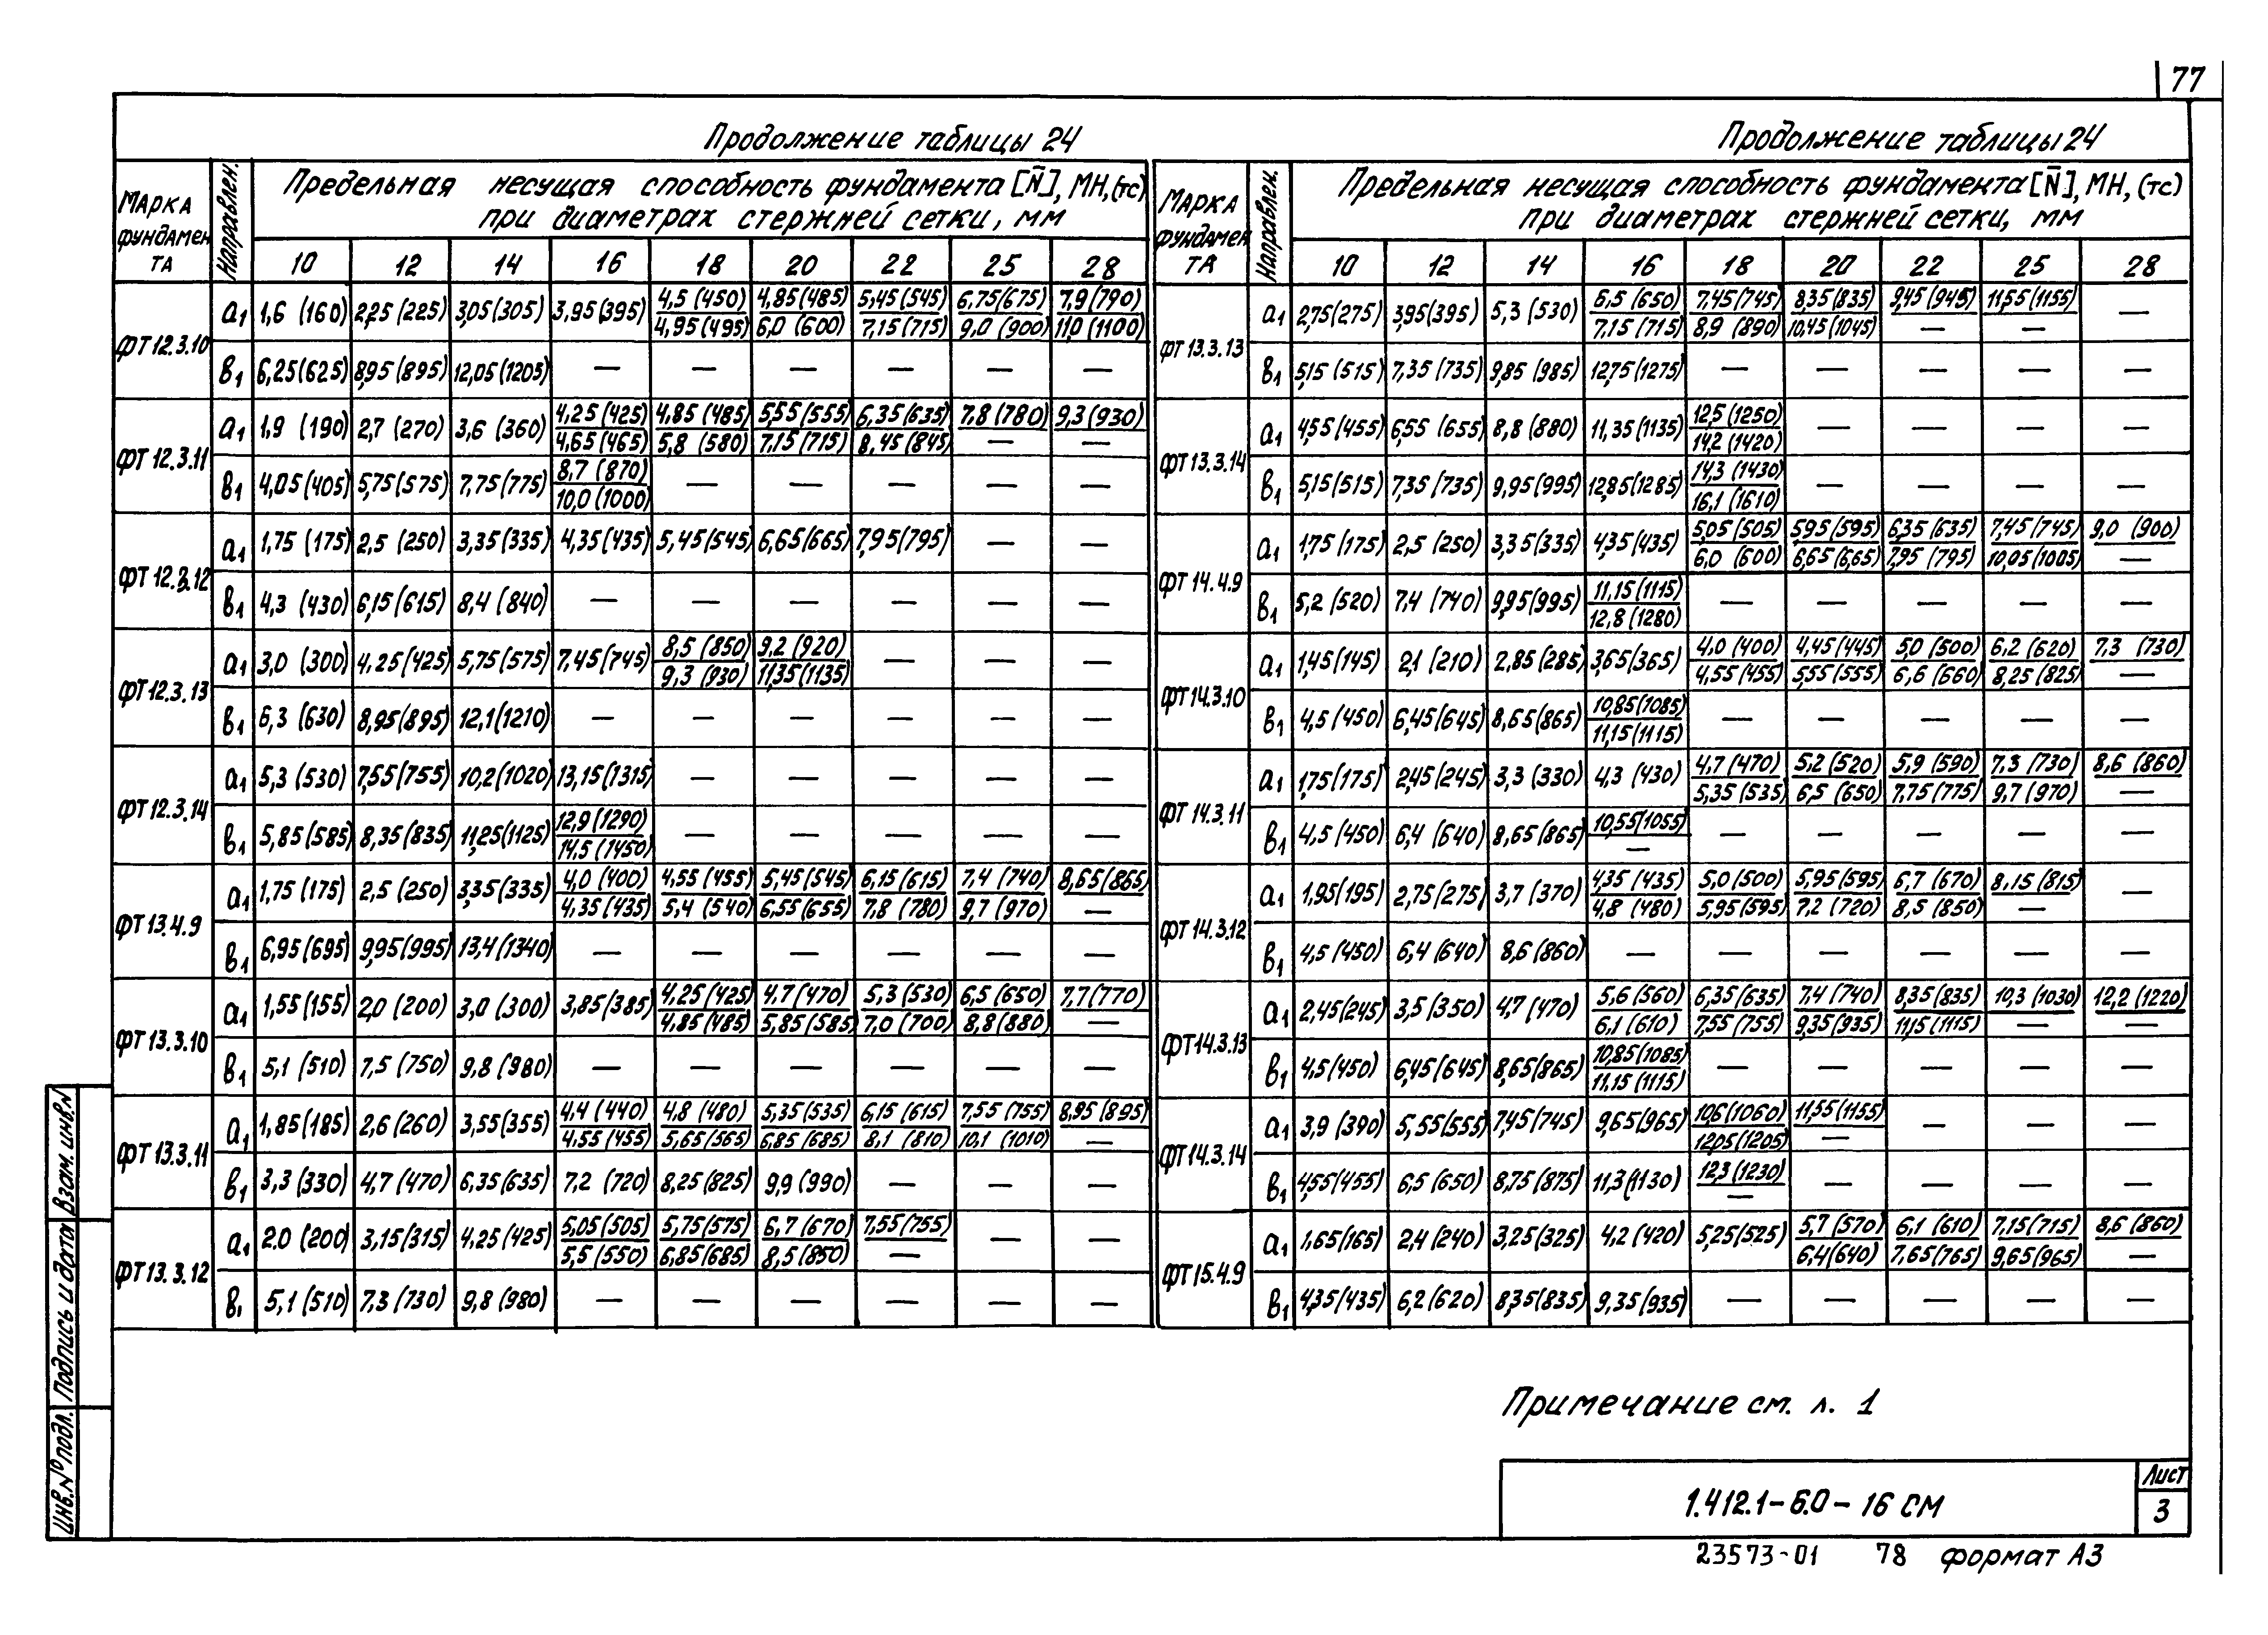 77
Продолжение таблицы 24
Марка фундамента | Направлен. | Предельная несущая способность фундамента [N̄], МН, (тс) при диаметрах стержней сетки, мм
10 | 12 | 14 | 16 | 18 | 20 | 22 | 25 | 28
ФТ12.3.10 | а1 | 1,6 (160) | 2,25 (225) | 3,05 (305) | 3,95 (395) | 4,5 (450) / 4,95 (495) | 4,85 (485) / 6,0 (600) | 5,45 (545) / 7,15 (715) | 6,75 (675) / 9,0 (900) | 7,9 (790) / 11,0 (1100)
в1 | 6,25 (625) | 8,95 (895) | 12,05 (1205) | — | — | — | — | — | —
ФТ12.3.11 | а1 | 1,9 (190) | 2,7 (270) | 3,6 (360) | 4,25 (425) / 4,65 (465) | 4,85 (485) / 5,8 (580) | 5,55 (555) / 7,15 (715) | 6,35 (635) / 8,45 (845) | 7,8 (780) / — | 9,3 (930) / —
в1 | 4,05 (405) | 5,75 (575) | 7,75 (775) | 8,7 (870) / 10,0 (1000) | — | — | — | — | —
ФТ12.3.12 | а1 | 1,75 (175) | 2,5 (250) | 3,35 (335) | 4,35 (435) | 5,45 (545) | 6,65 (665) | 7,95 (795) | — | —
в1 | 4,3 (430) | 6,15 (615) | 8,4 (840) | — | — | — | — | — | —
ФТ12.3.13 | а1 | 3,0 (300) | 4,25 (425) | 5,75 (575) | 7,45 (745) | 8,5 (850) / 9,3 (930) | 9,2 (920) / 11,35 (1135) | — | — | —
в1 | 6,3 (630) | 8,95 (895) | 12,1 (1210) | — | — | — | — | — | —
ФТ12.3.14 | а1 | 5,3 (530) | 7,55 (755) | 10,2 (1020) | 13,15 (1315) | — | — | — | — | —
в1 | 5,85 (585) | 8,35 (835) | 11,25 (1125) | 12,9 (1290) / 14,5 (1450) | — | — | — | — | —
ФТ13.4.9 | а1 | 1,75 (175) | 2,5 (250) | 3,35 (335) | 4,0 (400) / 4,35 (435) | 4,55 (455) / 5,4 (540) | 5,45 (545) / 6,55 (655) | 6,15 (615) / 7,8 (780) | 7,4 (740) / 9,7 (970) | 8,65 (865) / —
в1 | 6,95 (695) | 9,95 (995) | 13,4 (1340) | — | — | — | — | — | —
ФТ13.3.10 | а1 | 1,55 (155) | 2,0 (200) | 3,0 (300) | 3,85 (385) | 4,25 (425) / 4,85 (485) | 4,7 (470) / 5,85 (585) | 5,3 (530) / 7,0 (700) | 6,5 (650) / 8,8 (880) | 7,7 (770) / —
в1 | 5,1 (510) | 7,5 (750) | 9,8 (980) | — | — | — | — | — | —
ФТ13.3.11 | а1 | 1,85 (185) | 2,6 (260) | 3,55 (355) | 4,4 (440) / 4,55 (455) | 4,8 (480) / 5,65 (565) | 5,35 (535) / 6,85 (685) | 6,15 (615) / 8,1 (810) | 7,55 (755) / 10,1 (1010) | 8,95 (895) / —
в1 | 3,3 (330) | 4,7 (470) | 6,35 (635) | 7,2 (720) | 8,25 (825) | 9,9 (990) | — | — | —
ФТ13.3.12 | а1 | 2.0 (200) | 3,15 (315) | 4,25 (425) | 5,05 (505) / 5,5 (550) | 5,75 (575) / 6,85 (685) | 6,7 (670) / 8,5 (850) | 7,55 (755) / — | — | —
в1 | 5,1 (510) | 7,3 (730) | 9,8 (980) | — | — | — | — | — | —
Продолжение таблицы 24
Марка фундамента | Направлен. | Предельная несущая способность фундамента [N̄], МН, (тс) при диаметрах стержней сетки, мм
10 | 12 | 14 | 16 | 18 | 20 | 22 | 25 | 28
ФТ13.3.13 | а1 | 2,75 (275) | 3,95 (395) | 5,3 (530) | 6,5 (650) / 7,15 (715) | 7,45 (745) / 8,9 (890) | 8,35 (835) / 10,45 (1045) | 9,45 (945) / — | 11,55 (1155) / — | —
в1 | 5,15 (515) | 7,35 (735) | 9,85 (985) | 12,75 (1275) | — | — | — | — | —
ФТ13.3.14 | а1 | 4,55 (455) | 6,55 (655) | 8,8 (880) | 11,35 (1135) | 12,5 (1250) / 14,2 (1420) | — | — | — | —
в1 | 5,15 (515) | 7,35 (735) | 9,95 (995) | 12,85 (1285) | 14,3 (1430) / 16,1 (1610) | — | — | — | —
ФТ14.4.9 | а1 | 1,75 (175) | 2,5 (250) | 3,35 (335) | 4,35 (435) | 5,05 (505) / 6,0 (600) | 5,95 (595) / 6,65 (6,65) | 6,35 (635) / 7,95 (795) | 7,45 (745) / 10,05 (1005) | 9,0 (900) / —
в1 | 5,2 (520) | 7,4 (740) | 9,95 (995) | 11,15 (1115) / 12,8 (1280) | — | — | — | — | —
ФТ14.3.10 | а1 | 1,45 (145) | 2,1 (210) | 2,85 (285) | 3,65 (365) | 4,0 (400) / 4,55 (455) | 4,45 (445) / 5,55 (555) | 5,0 (500) / 6,6 (660) | 6,2 (620) / 8,25 (825) | 7,3 (730) / —
в1 | 4,5 (450) | 6,45 (645) | 8,65 (865) | 10,85 (1085) / 11,15 (1115) | — | — | — | — | —
ФТ14.3.11 | а1 | 1,75 (175) | 2,45 (245) | 3,3 (330) | 4,3 (430) | 4,7 (470) / 5,35 (535) | 5,2 (520) / 6,5 (650) | 5,9 (590) / 7,75 (775) | 7,3 (730) / 9,7 (970) | 8,6 (860) / —
в1 | 4,5 (450) | 6,4 (640) | 8,65 (865) | 10,55 (1055) / — | — | — | — | — | —
ФТ14.3.12 | а1 | 1,95 (195) | 2,75 (275) | 3,7 (370) | 4,35 (435) / 4,8 (480) | 5,0 (500) / 5,95 (595) | 5,95 (595) / 7,2 (720) | 6,7 (670) / 8,5 (850) | 8,15 (815) / — | —
в1 | 4,5 (450) | 6,4 (640) | 8,6 (860) | — | — | — | — | — | —
ФТ14.3.13 | а1 | 2,45 (245) | 3,5 (350) | 4,7 (470) | 5,6 (560) / 6,1 (610) | 6,35 (635) / 7,55 (755) | 7,4 (740) / 9,35 (935) | 8,35 (835) / 11,15 (1115) | 10,3 (1030) / — | 12,2 (1220) / —
в1 | 4,5 (450) | 6,45 (645) | 8,65 (865) | 10,85 (1085) / 11,15 (1115) | — | — | — | — | —
ФТ14.3.14 | а1 | 3,9 (390) | 5,55 (555) | 7,45 (745) | 9,65 (965) | 10,6 (1060) / 12,05 (1205) | 11,55 (1155) / — | — | — | —
в1 | 4,55 (455) | 6,5 (650) | 8,75 (875) | 11,3 (1130) | 12,3 (1230) / — | — | — | — | —
ФТ15.4.9 | а1 | 1,65 (165) | 2,4 (240) | 3,25 (325) | 4,2 (420) | 5,25 (525) | 5,7 (570) / 6,4 (640) | 6,1 (610) / 7,65 (765) | 7,15 (715) / 9,65 (965) | 8,6 (860) / —
в1 | 4,35 (435) | 6,2 (620) | 8,35 (835) | 9,35 (935) | — | — | — | — | —
Примечание см. л. 1
1.412.1-6.0-16 СМ
Лист
3
23573-01 78 формат А3
Инв. № подл. Подпись и дата Взам. инв. №